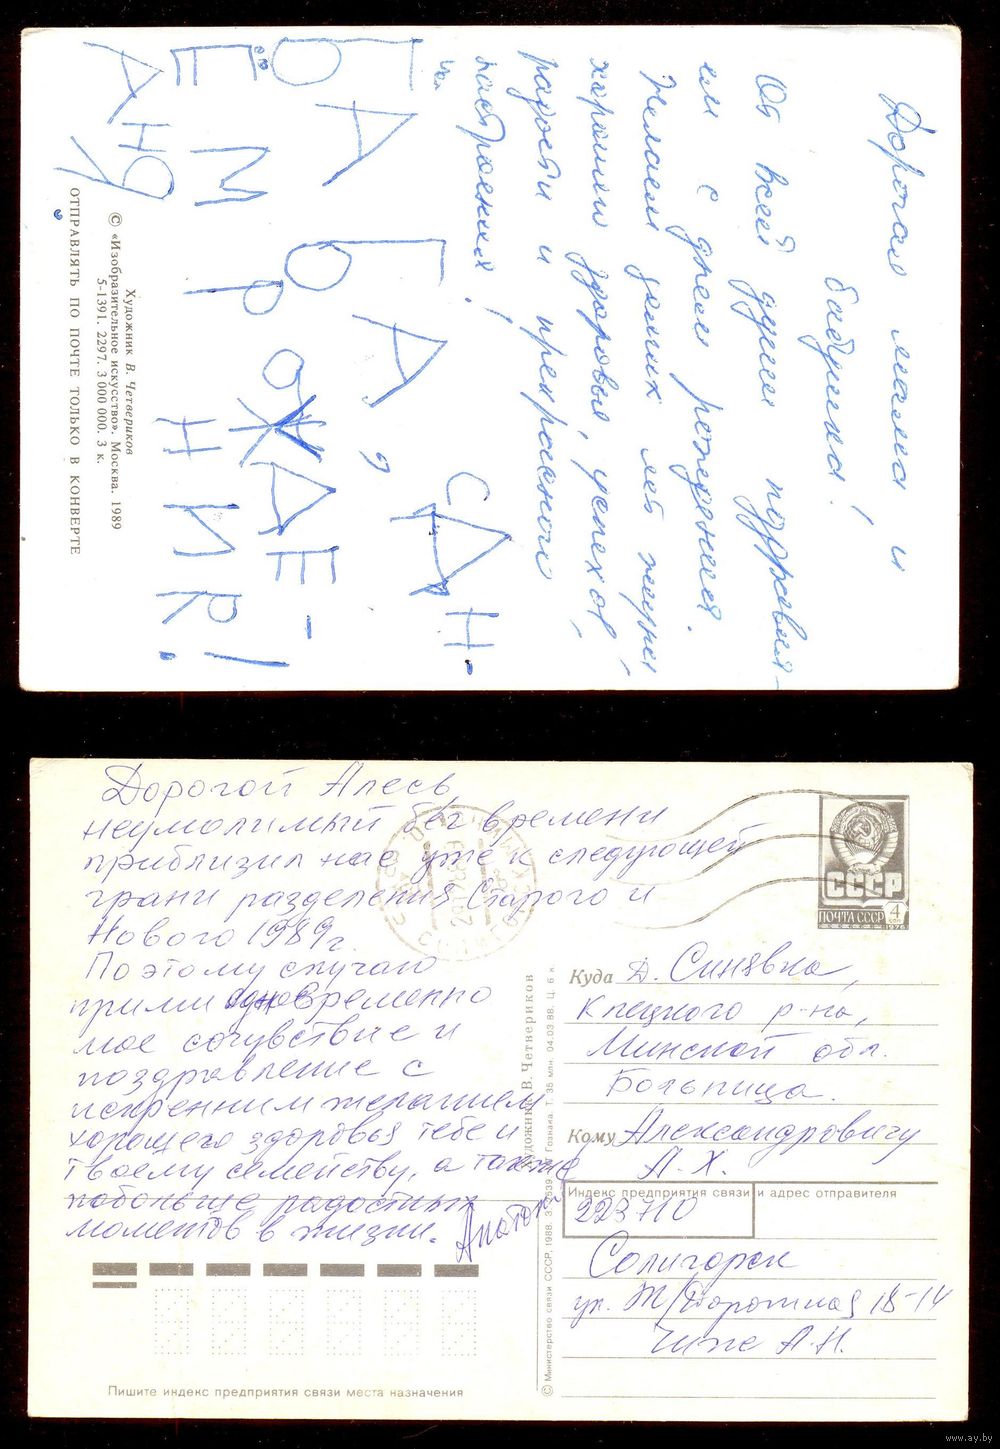 Дорогая мама и
бабушка!
От всей души поздравля-
ем с днем рождения.
Желаем долгих лет жизни,
хорошего здоровья, успехов,
радости и прекрасного
настроения!
БАБА, С ДН-
ЕМ РОЖДЕ-
АНЯ
НИЯ!
Художник В. Четвериков
© «Изобразительное искусство». Москва. 1989
5-1391. 2297. 3 000 000. 3 к.
ОТПРАВЛЯТЬ ПО ПОЧТЕ ТОЛЬКО В КОНВЕРТЕ
Дорогой Алесь,
неумолимый бег времени
приблизил нас уже к следующей
грани разделения Старого и
Нового 1989г.
По этому случаю
прими одновременно
мое сочувствие и
поздравление с
искренним желанием
хорошего здоровья тебе и
твоему семейству, а также
побольше радостных
моментов в жизни.
Анатолий
СССР
ПОЧТА СССР 4 коп
1976
Куда д. Синявка,
Клецкого р-на,
Минской обл.
Больница.
Кому Александровичу
А. Х.
Индекс предприятия связи и адрес отправителя
223710
Солигорск
ул. Ж/Дорожная 18-14
Чиж А.Н.
Художник В. Четвериков
© Министерство связи СССР, 1988. Гознака. Т. 35 млн. 04.03.88. Ц. 6 к.
Пишите индекс предприятия связи места назначения
www.ay.by